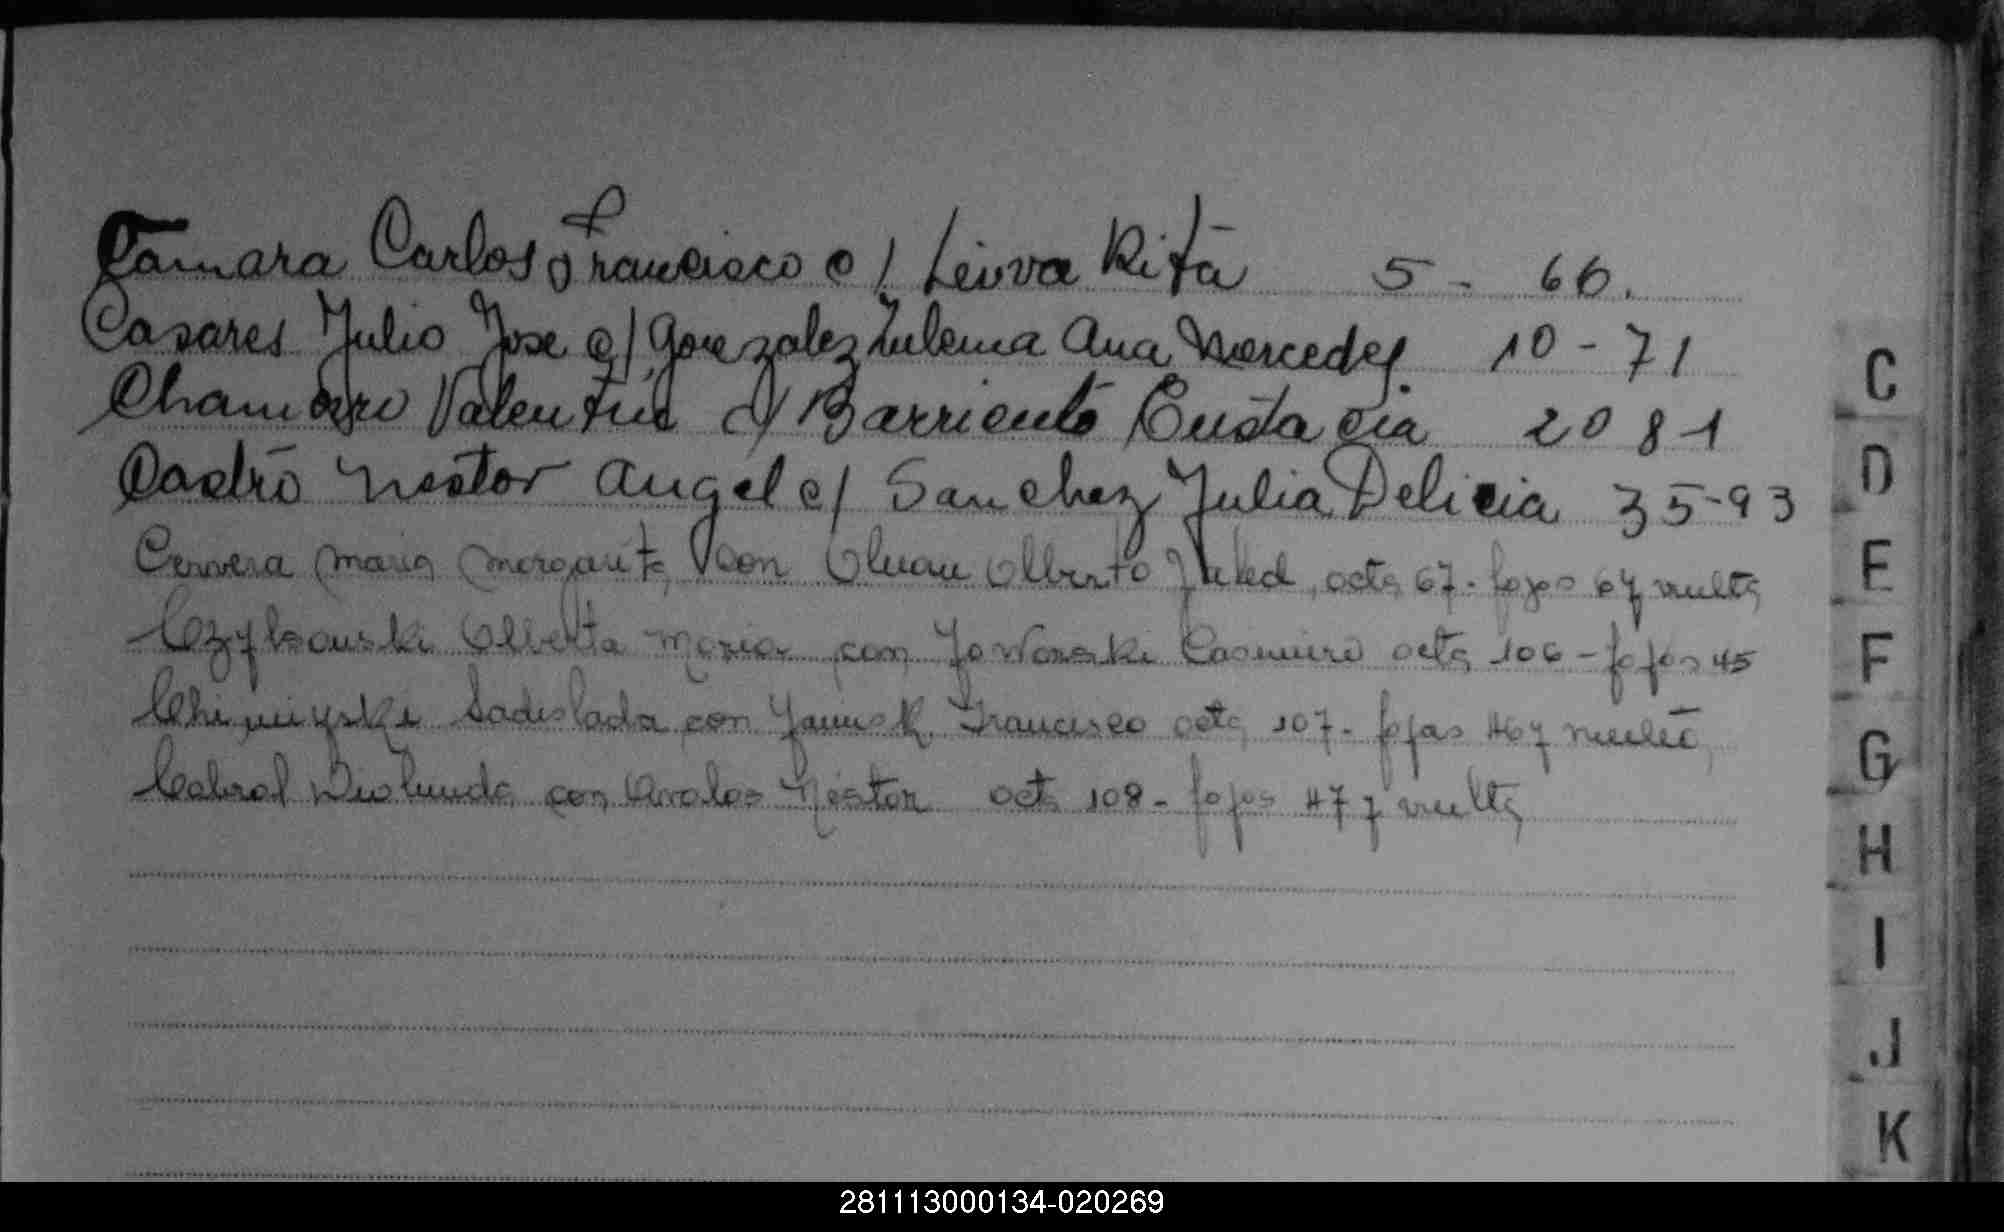 Camara Carlos Francisco c/ Leiva Rita 5 - 66.
Casares Julio Jose c/ Gonzalez Zulema Ana Mercedes. 10 - 71
Chamorro Valentin c/ Barrientō Eustacia 20 81
Castro Nestor Angel c/ Sanchez Julia Delicia 35-93
Cervera Maria Margarita con Alberto acta 67 - fojas 67 vuelta
Alberta Maria con Casimiro acta 106 - fojas 45
Ladislada con Francisco acta 107 - fojas 46 y vuelta
Cabral con Avalos Nestor acta 108 - fojas 47 y vuelta
C
D
E
F
G
H
I
J
K
281113000134-020269